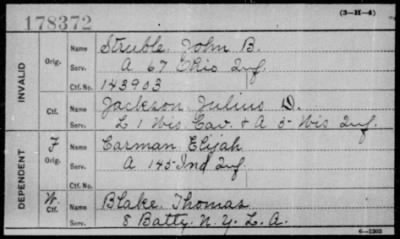 (3-H-4)
178372
INVALID
Orig. Name Struble, John B.
Serv. A 67 Ohio Inf.
Ctf. No. 143903
Ctf. Name Jackson Julius D.
Serv. L 1 Wis Cav. & A 5 Wis Inf.
DEPENDENT
F. Orig. Name Carman Elijah
Serv. A 145 Ind Inf.
Ctf. No.
W. Ctf. Name Blake, Thomas
Serv. 8 Batty. N. Y. L. A.
6-1303